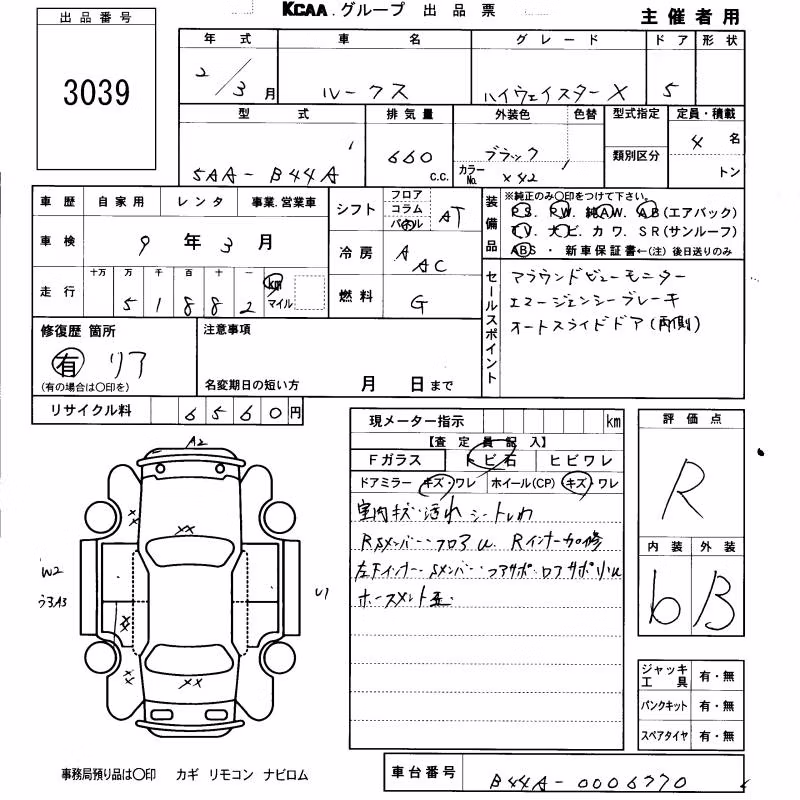 KCAA.グループ 出品票
主催者用
出品番号
3039
年式 車名 グレード ドア 形状
2/3月 ルークス ハイウェイスターX 5
型式 排気量 外装色 色替 型式指定 定員・積載
類別区分
5AA-B44A 660 c.c. ブラック カラーNo. X42 4名
トン
車歴 自家用 レンタ 事業.営業車
車検 9年3月
走行 十万 万 千 百 十 一
5 1 8 8 2 km マイル
シフト フロア コラム パネル AT
冷房 A AC
燃料 G
装備品 ※純正のみ○印をつけて下さい。
PS. PW. 純AW. AB(エアバック)
TV. ナビ. カワ. SR(サンルーフ)
ABS・新車保証書←(注)後日送りのみ
セールスポイント
アラウンドビューモニター
エマージェンシーブレーキ
オートスライドドア(両側)
修復歴 箇所
有 リア
(有の場合は○印を)
注意事項
名変期日の短い方 月 日まで
リサイクル料 6560円
現メーター指示 km
【査定員記入】
Fガラス トビ石 ヒビワレ
ドアミラー キズ・ワレ ホイール(CP) キズ・ワレ
室内キズ・汚れ シートしわ
RSメンバー・フロアU. Rインナー加修
左下インナー・Sメンバー・コアサポ・ロアサポ小U
ホースメント歪.
評価点
R
内装 外装
b B
ジャッキ工具 有・無
パンクキット 有・無
スペアタイヤ 有・無
A2
XX
XX
W2
U1
XX
XX
XX
事務局預り品は○印 カギ リモコン ナビロム
車台番号 B44A-0006770